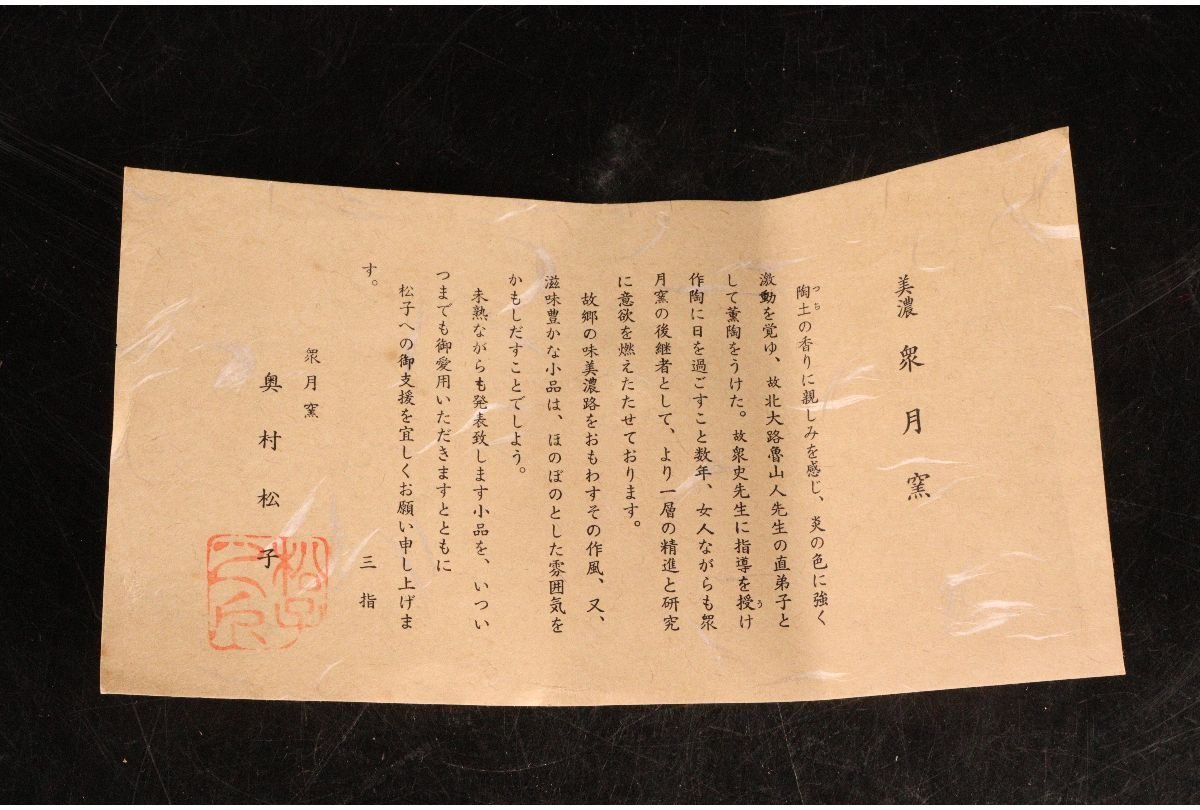 美濃 衆月窯
陶土の香りに親しみを感じ、炎の色に強く
つち
激動を覚ゆ、故北大路魯山人先生の直弟子と
して薫陶をうけた。故衆史先生に指導を授け
う
作陶に日を過ごすこと数年、女人ながらも衆
月窯の後継者として、より一層の精進と研究
に意欲を燃えたたせております。
故郷の味美濃路をおもわすその作風、又、
滋味豊かな小品は、ほのぼのとした雰囲気を
かもしだすことでしよう。
未熟ながらも発表致します小品を、いつい
つまでも御愛用いただきますとともに
松子への御支援を宜しくお願い申し上げま
す。
三指
衆月窯
奥村松子
松子